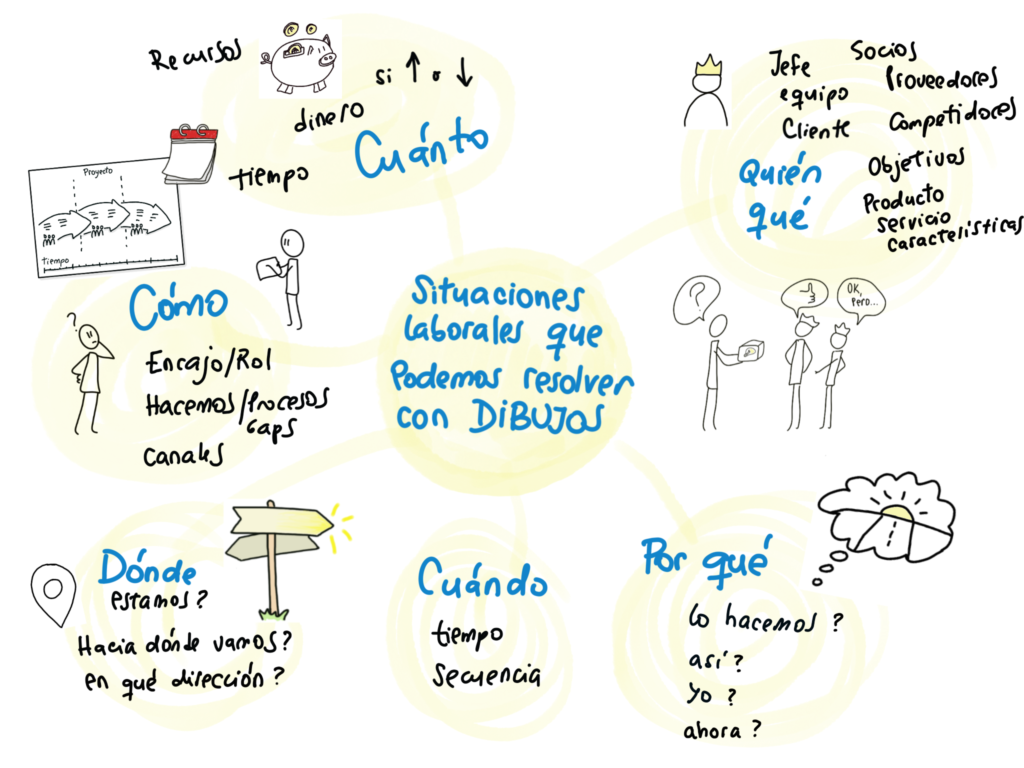 Recursos
si ↑ o ↓
dinero
Cuánto
tiempo
Proyecto
tiempo
Jefe
equipo
Cliente
Socios
Proveedores
Competidores
Quién
qué
Objetivos
Producto
Servicio
características
Situaciones
laborales que
Podemos resolver
con DIBUJOS
Cómo
?
Encajo/Rol
Hacemos/Procesos
Gaps
canales
?
OK,
pero...
Dónde
estamos?
Hacia dónde vamos?
en qué dirección?
Cuándo
tiempo
secuencia
Por qué
lo hacemos?
así?
yo?
ahora?